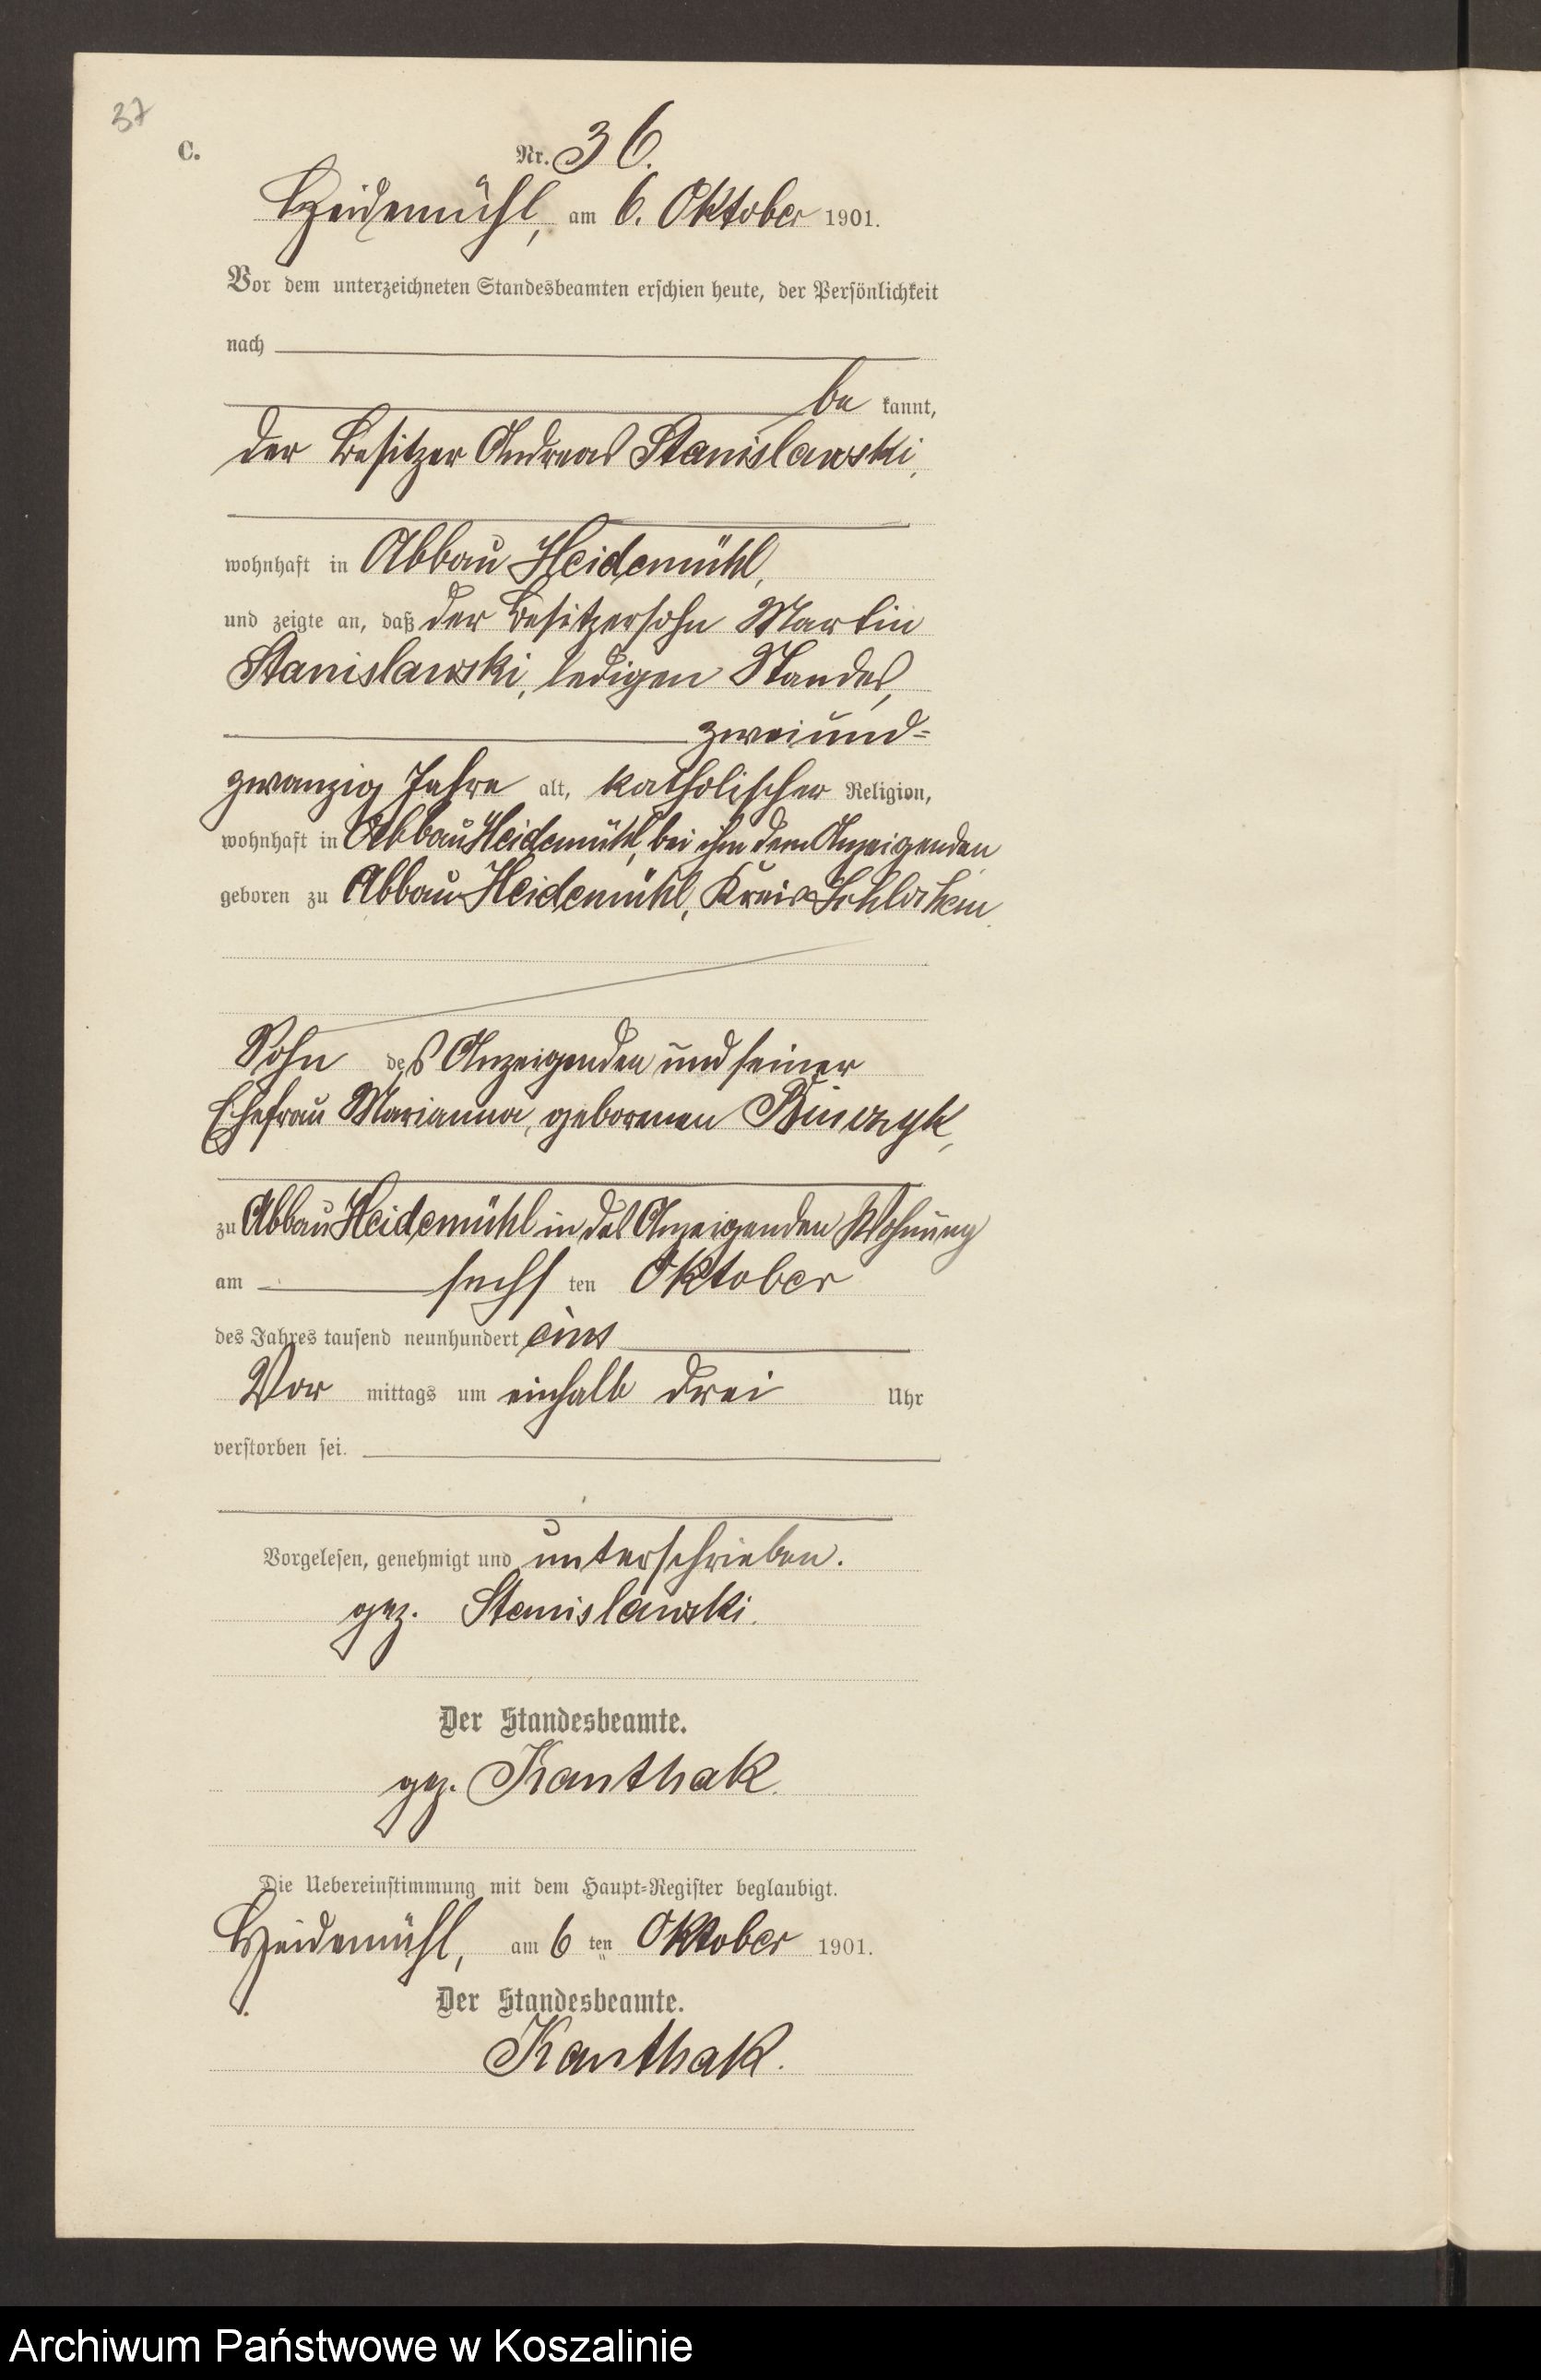 37
C.
Nr. 36.
Heidemühl, am 6. Oktober 1901.
Vor dem unterzeichneten Standesbeamten erschien heute, der Persönlichkeit
nach
be kannt,
der Besitzer Andreas Stanislawski,
wohnhaft in Abbau Heidemühl,
und zeigte an, daß der Besitzersohn Martin
Stanislawski, ledigen Standes,
zweiund=
zwanzig Jahre alt, katholischer Religion,
wohnhaft in Abbau Heidemühl, bei ihm dem Anzeigenden
geboren zu Abbau Heidemühl, Kreis
Sohn des Anzeigenden und seiner
Ehefrau Marianna, geborenen Binczyk,
zu Abbau Heidemühl in des Anzeigenden Wohnung
am sechs ten Oktober
des Jahres tausend neunhundert eins
Vor mittags um einhalb drei Uhr
verstorben sei.
Vorgelesen, genehmigt und unterschrieben.
gez. Stanislawski.
Der Standesbeamte.
gez. Kanthak.
Die Uebereinstimmung mit dem Haupt=Register beglaubigt.
Heidemühl, am 6 ten Oktober 1901.
Der Standesbeamte.
Kanthak.
Archiwum Państwowe w Koszalinie